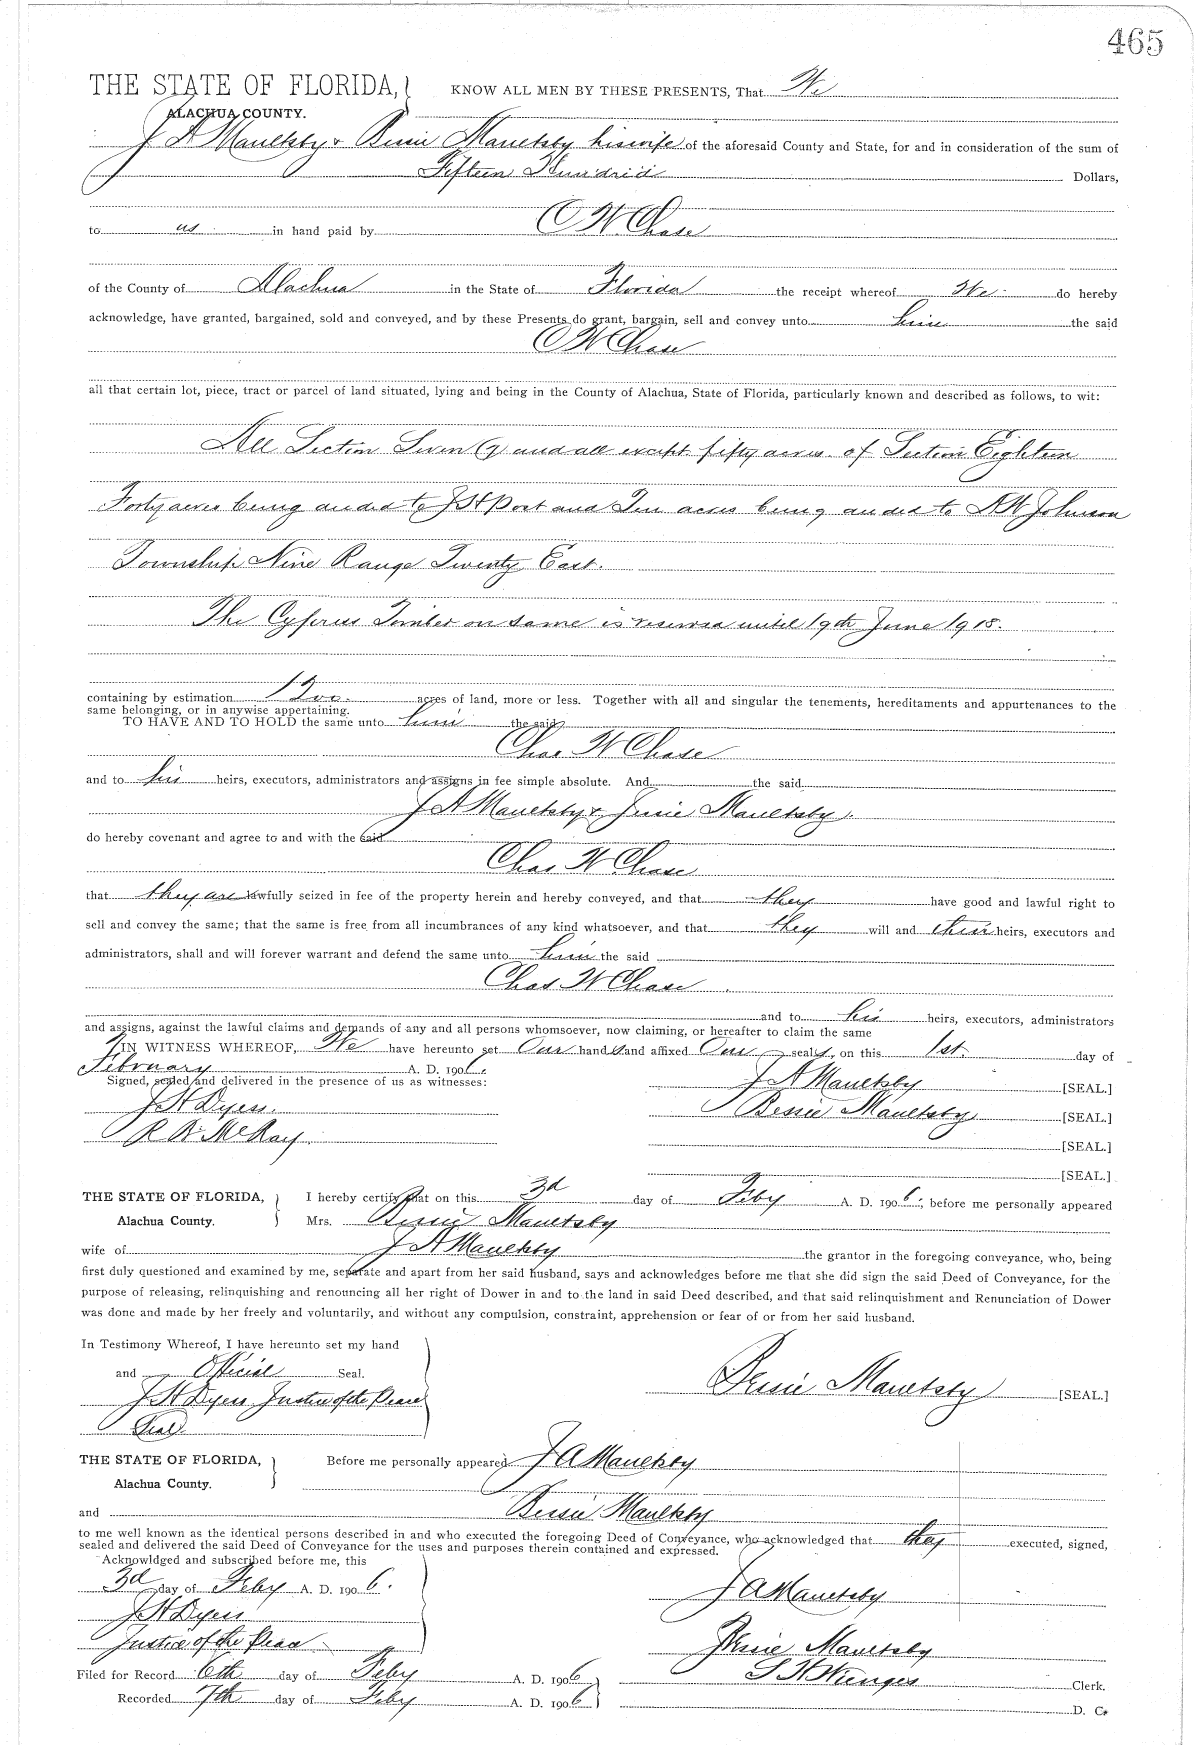 465
THE STATE OF FLORIDA, KNOW ALL MEN BY THESE PRESENTS, That We
ALACHUA COUNTY.
J A Maultsby & Bessie Maultsby his wife of the aforesaid County and State, for and in consideration of the sum of
Fifteen Hundrid Dollars,
to us in hand paid by C W Chase
of the County of Alachua in the State of Florida the receipt whereof We do hereby
acknowledge, have granted, bargained, sold and conveyed, and by these Presents do grant, bargain, sell and convey unto him the said
C W Chase
all that certain lot, piece, tract or parcel of land situated, lying and being in the County of Alachua, State of Florida, particularly known and described as follows, to wit:
All Section Seven (7) and all except fifty acres of Section Eighteen
Forty acres being deeded to J H Post and Ten acres being deeded to Johnson
Township Nine Range Twenty East.
The Cyprus Timber on same is reserved until 19th June 1918.
containing by estimation 1200 acres of land, more or less. Together with all and singular the tenements, hereditaments and appurtenances to the
same belonging, or in anywise appertaining.
TO HAVE AND TO HOLD the same unto him the said
Chas W Chase
and to his heirs, executors, administrators and assigns in fee simple absolute. And the said
J A Maultsby & Jessie Maultsby.
do hereby covenant and agree to and with the said
Chas W Chase
that they are lawfully seized in fee of the property herein and hereby conveyed, and that they have good and lawful right to
sell and convey the same; that the same is free from all incumbrances of any kind whatsoever, and that they will and their heirs, executors and
administrators, shall and will forever warrant and defend the same unto him the said
Chas W Chase
and to his heirs, executors, administrators
and assigns, against the lawful claims and demands of any and all persons whomsoever, now claiming, or hereafter to claim the same
IN WITNESS WHEREOF, We have hereunto set Our hands and affixed Our seals, on this 1st. day of
February A. D. 1906.
Signed, sealed and delivered in the presence of us as witnesses: J A Maultsby [SEAL.]
J H Dyess. Bessie Maultsby [SEAL.]
R W McKay. [SEAL.]
[SEAL.]
THE STATE OF FLORIDA, I hereby certify that on this 3d day of Feby A. D. 1906; before me personally appeared
Alachua County. Mrs. Bessie Maultsby
wife of J A Maultsby the grantor in the foregoing conveyance, who, being
first duly questioned and examined by me, separate and apart from her said husband, says and acknowledges before me that she did sign the said Deed of Conveyance, for the
purpose of releasing, relinquishing and renouncing all her right of Dower in and to the land in said Deed described, and that said relinquishment and Renunciation of Dower
was done and made by her freely and voluntarily, and without any compulsion, constraint, apprehension or fear of or from her said husband.
In Testimony Whereof, I have hereunto set my hand
and Official Seal. Bessie Maultsby [SEAL.]
J H Dyess Justice of the Peace
Seal
THE STATE OF FLORIDA, Before me personally appeared J A Maultsby
Alachua County.
and Bessie Maultsby
to me well known as the identical persons described in and who executed the foregoing Deed of Conveyance, who acknowledged that they executed, signed,
sealed and delivered the said Deed of Conveyance for the uses and purposes therein contained and expressed.
Acknowldged and subscribed before me, this
3d day of Feby A. D. 1906. J A Maultsby
J H Dyess
Justice of the Peace Bessie Maultsby
Filed for Record 6th day of Feby A. D. 1906 S H Wienges Clerk.
Recorded 7th day of Feby A. D. 1906 D. C.